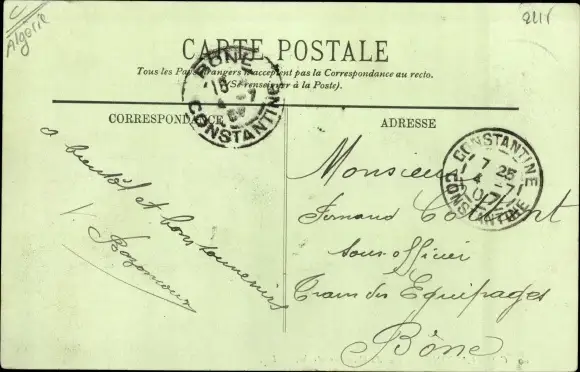 Algerie
CARTE POSTALE
Tous les Pays étrangers n'acceptent pas la Correspondance au recto.
(Se renseigner à la Poste).
CORRESPONDANCE
ADRESSE
BONE
CONSTANTINE
CONSTANTINE
7 25
4 -7
07
CONSTANTINE
a bientôt et bons souvenirs
V.
Monsieur
Fernand
sous-officier
Train des Equipages
Bône